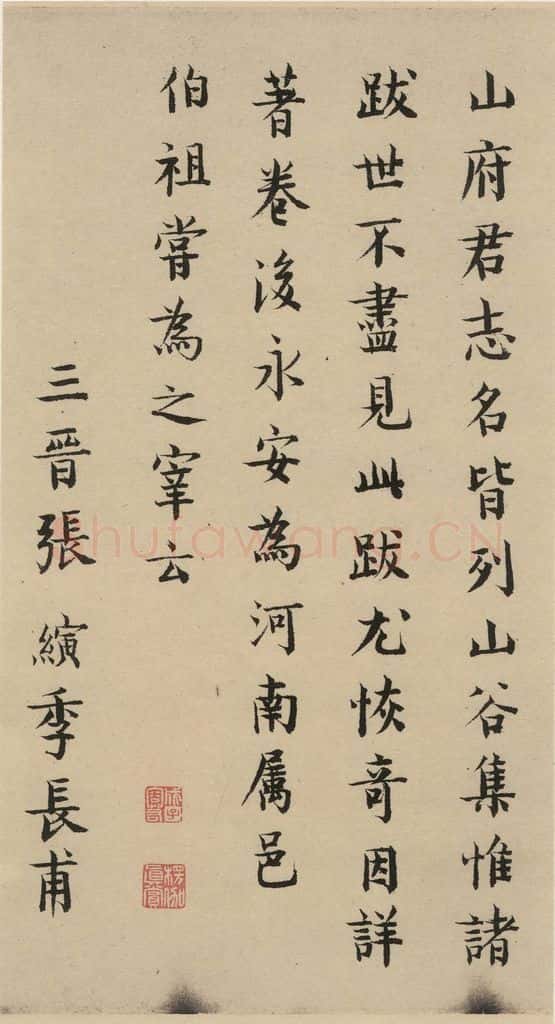 山府君志名皆列山谷集惟諸
跋世不盡見此跋尤恢奇因詳
著卷後永安為河南属邑
伯祖嘗為之宰云
三晋張縯季長甫
Shufawang.CN